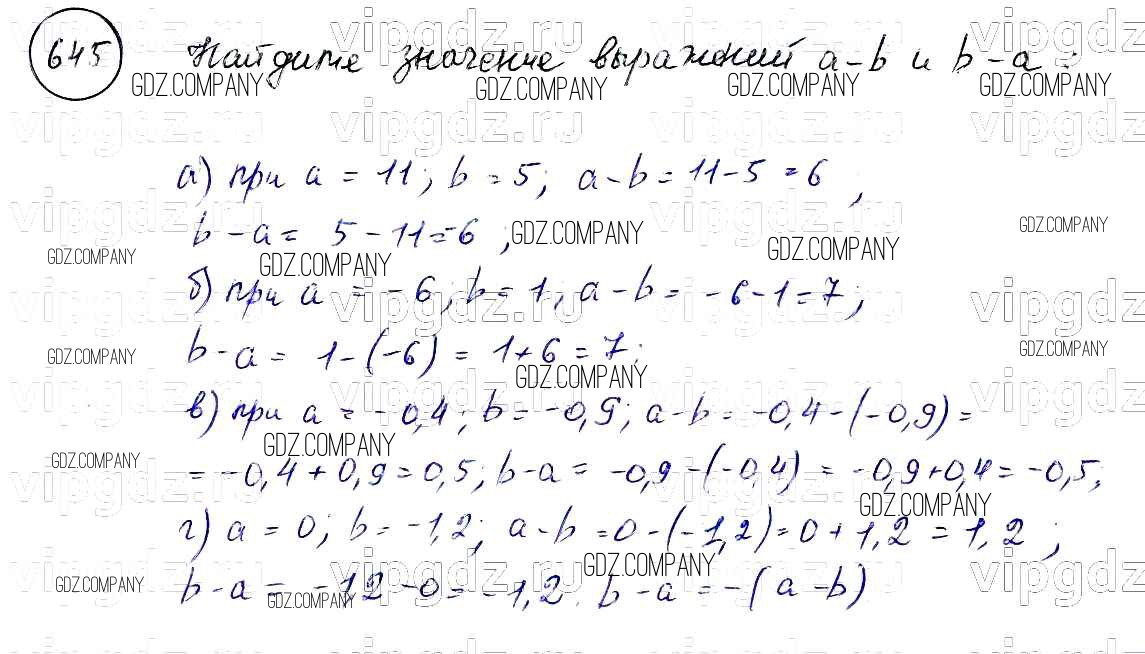 645 Найдите значение выражений a-b и b-a:
а) при a = 11; b = 5; a-b = 11-5 = 6;
b-a = 5-11=-6;
б) при a = -6; b = 1, a-b = -6-1=7;
b-a = 1-(-6) = 1+6 = 7;
в) при a = -0,4; b = -0,9; a-b = -0,4-(-0,9) =
= -0,4+0,9 = 0,5; b-a = -0,9-(-0,4) = -0,9+0,4 = -0,5;
г) a = 0; b = -1,2; a-b = 0-(-1,2) = 0+1,2 = 1,2;
b-a = -1,2-0 = -1,2. b-a = -(a-b)
vipgdz.ru
GDZ.COMPANY